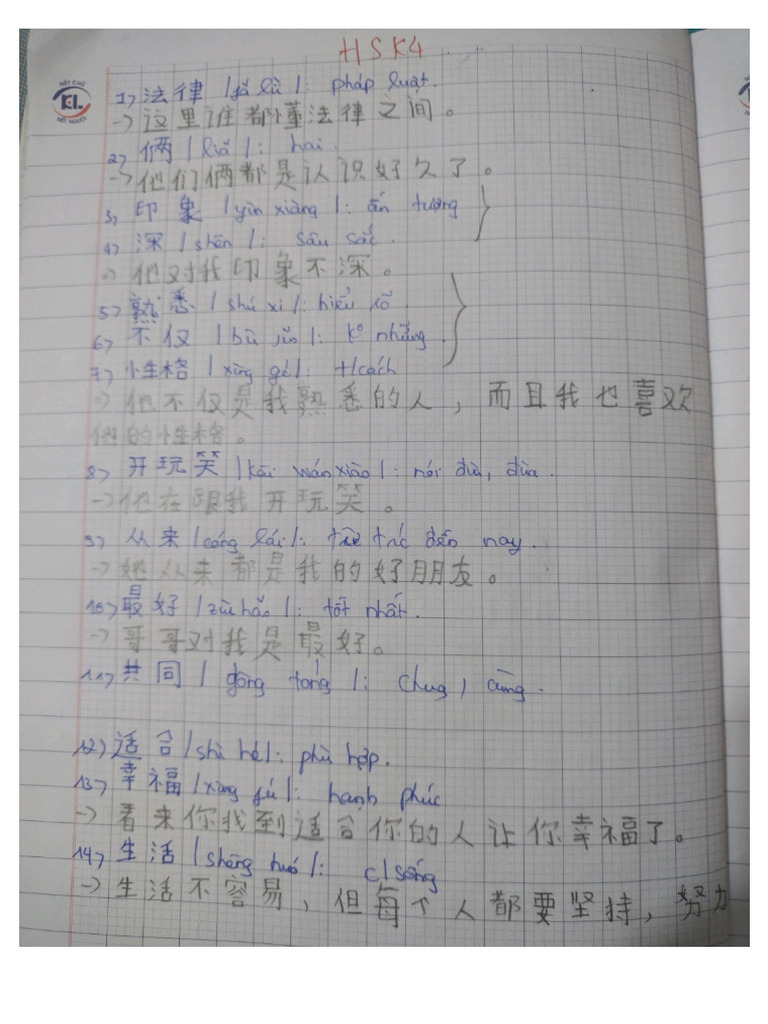 HSK4
NÉT CHỮ
KL
NẾT NGƯỜI
1) 法律 /fǎ lǜ/: pháp luật.
-> 这里谁都懂法律之间。
2) 俩 /liǎ/: hai.
-> 他们俩都是认识好久了。
3) 印象 /yìn xiàng/: ấn tượng
4) 深 /shēn/: sâu sắc.
-> 他对我印象不深。
5) 熟悉 /shú xī/: hiểu rõ.
6) 不仅 /bù jǐn/: k° những.
7) 性格 /xìng gé/: t/cách
-> 他不仅是我熟悉的人，而且我也喜欢
他的性格。
8) 开玩笑 /kāi wánxiào/: nói đùa, đùa.
-> 他在跟我开玩笑。
9) 从来 /cóng lái/: từ trc đến nay.
-> 她从来都是我的好朋友。
10) 最好 /zuì hǎo/: tốt nhất.
-> 哥哥对我是最好。
11) 共同 / gòng tóng /: chug, cùng.
12) 适合 /shì hé/: phù hợp.
13) 幸福 /xìng fú/: hạnh phúc
-> 看来你找到适合你的人让你幸福了。
14) 生活 /shēng huó/: c/sống
-> 生活不容易，但每个人都要坚持，努力